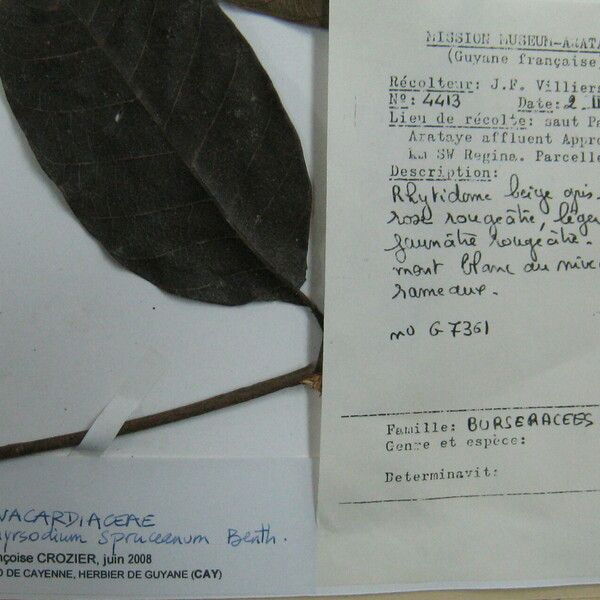 MISSION MUSEUM-ARATA
(Guyane française
Récolteur: J.F. Villiers
Nº: 4413 Date: 2 II
Lieu de récolte: saut Pa
Arataye affluent Appro
km SW Regina. Parcelle
Description:
Rhytidome beige gris.
rose rougeâtre, léger
jaunâtre rougeâtre.
ment blanc au nive
rameaux.
no G 7361
Famille: BURSERACEES
Genre et espèce:
Determinavit:
NACARDIACEAE
hyrsodium spruceanum Benth.
nçoise CROZIER, juin 2008
D DE CAYENNE, HERBIER DE GUYANE (CAY)